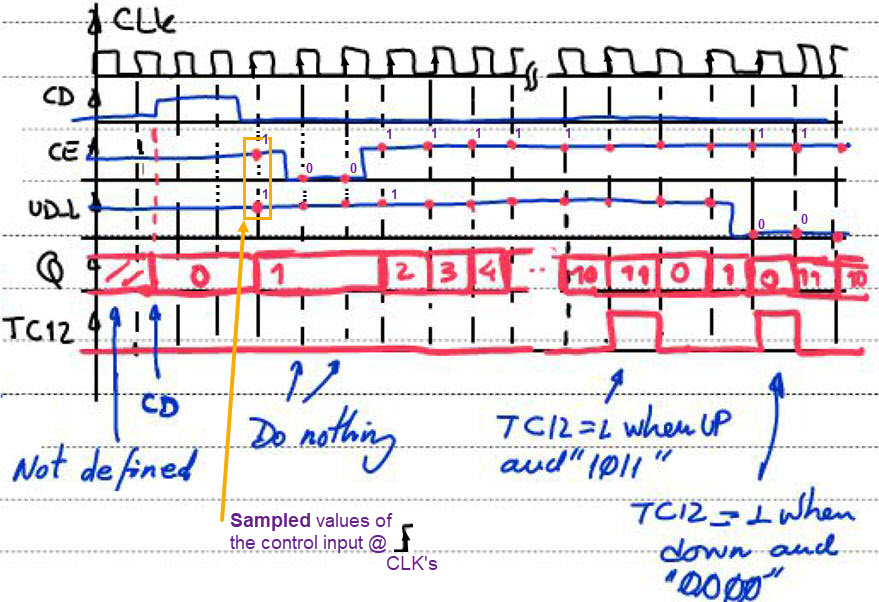 CLK
CD
CE 1 0 0 1 1 1 1 1 1 1
UD_L 1 1 0 0
Q 0 1 2 3 4 ... 10 11 0 1 0 11 10
TC12
CD
Not defined
Do nothing
TC12=1 when UP
and "1011"
TC12=1 when
down and
"0000"
Sampled values of
the control input @
CLK's